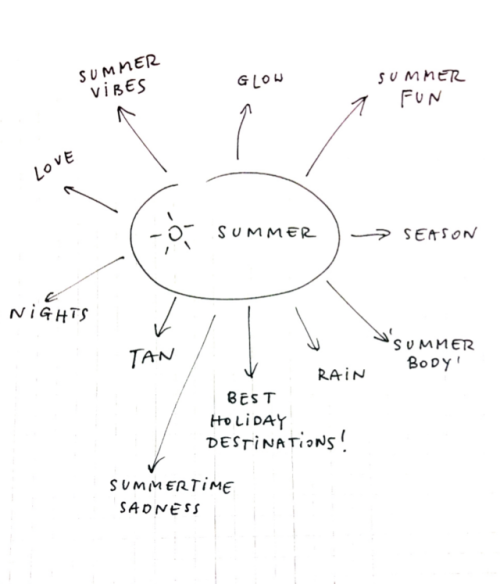 SUMMER
VIBES
GLOW
SUMMER
FUN
LOVE
SUMMER
SEASON
NIGHTS
TAN
'SUMMER
BODY'
RAIN
BEST
HOLIDAY
DESTINATIONS!
SUMMERTIME
SADNESS